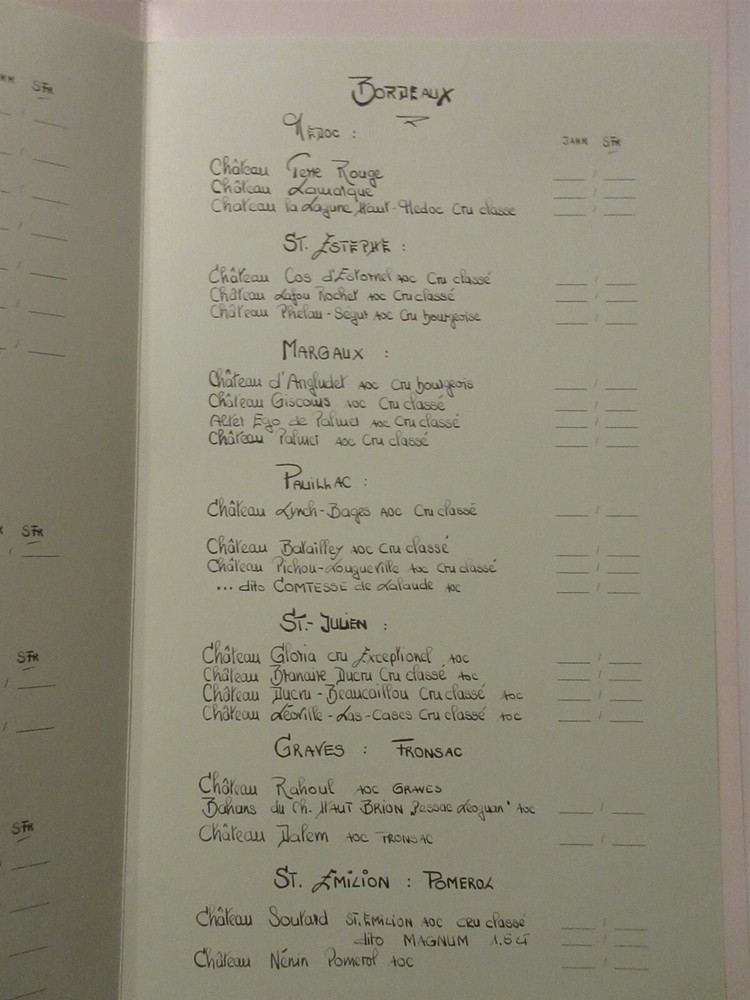 SFR
BORDEAUX
MÉDOC :
JAHR SFR
Château Terre Rouge
Château Lamarque
Château la Lagune Haut-Medoc Cru classe
ST. ESTEPHE :
Château Cos d'Estornel AOC Cru classé
Château Lafon Rochet AOC Cru classé
Château Phelan-Ségur AOC Cru bourgeoise
MARGAUX :
Château d'Angludet AOC Cru bourgeois
Château Giscours AOC Cru classé
Alter Ego de Palmer AOC Cru classé
Château Palmer AOC Cru classé
PAUILLAC :
Château Lynch-Bages AOC Cru classé
SFR
Château Batailley AOC Cru classé
Château Pichon-Longueville AOC Cru classé
... dito COMTESSE de Lalande AOC
ST.-JULIEN :
SFR
Château Gloria cru Exceptionel AOC
Château Branaire Ducru Cru classé AOC
Château Ducru-Beaucaillou Cru classé AOC
Château Léoville-Las-Cases Cru classé AOC
GRAVES : FRONSAC
Château Rahoul AOC GRAVES
Bahans du Ch. HAUT BRION Pessac Léognan' AOC
SFR
Château Dalem AOC FRONSAC
ST. EMILION : POMEROL
Château Soutard ST. EMILION AOC CRU classé
dito MAGNUM 1.5 LT
Château Nénin Pomerol AOC